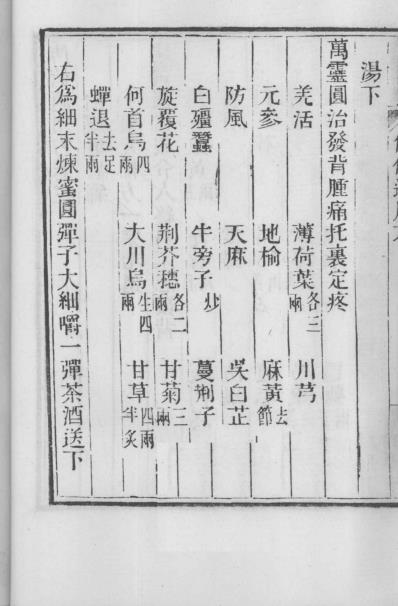 湯下
萬靈圓治發背腫痛托裏定疼
羌活　薄荷葉各三兩　川芎
元參　地榆　麻黃去節
防風　天麻　吳白芷
白殭蠶　牛旁子炒　蔓荆子
旋覆花　荆芥穗各二兩　甘菊三兩
何首烏四兩　大川烏生四兩　甘草四兩半炙
蟬退去足半兩
右爲細末煉蜜圓彈子大細嚼一彈茶酒送下